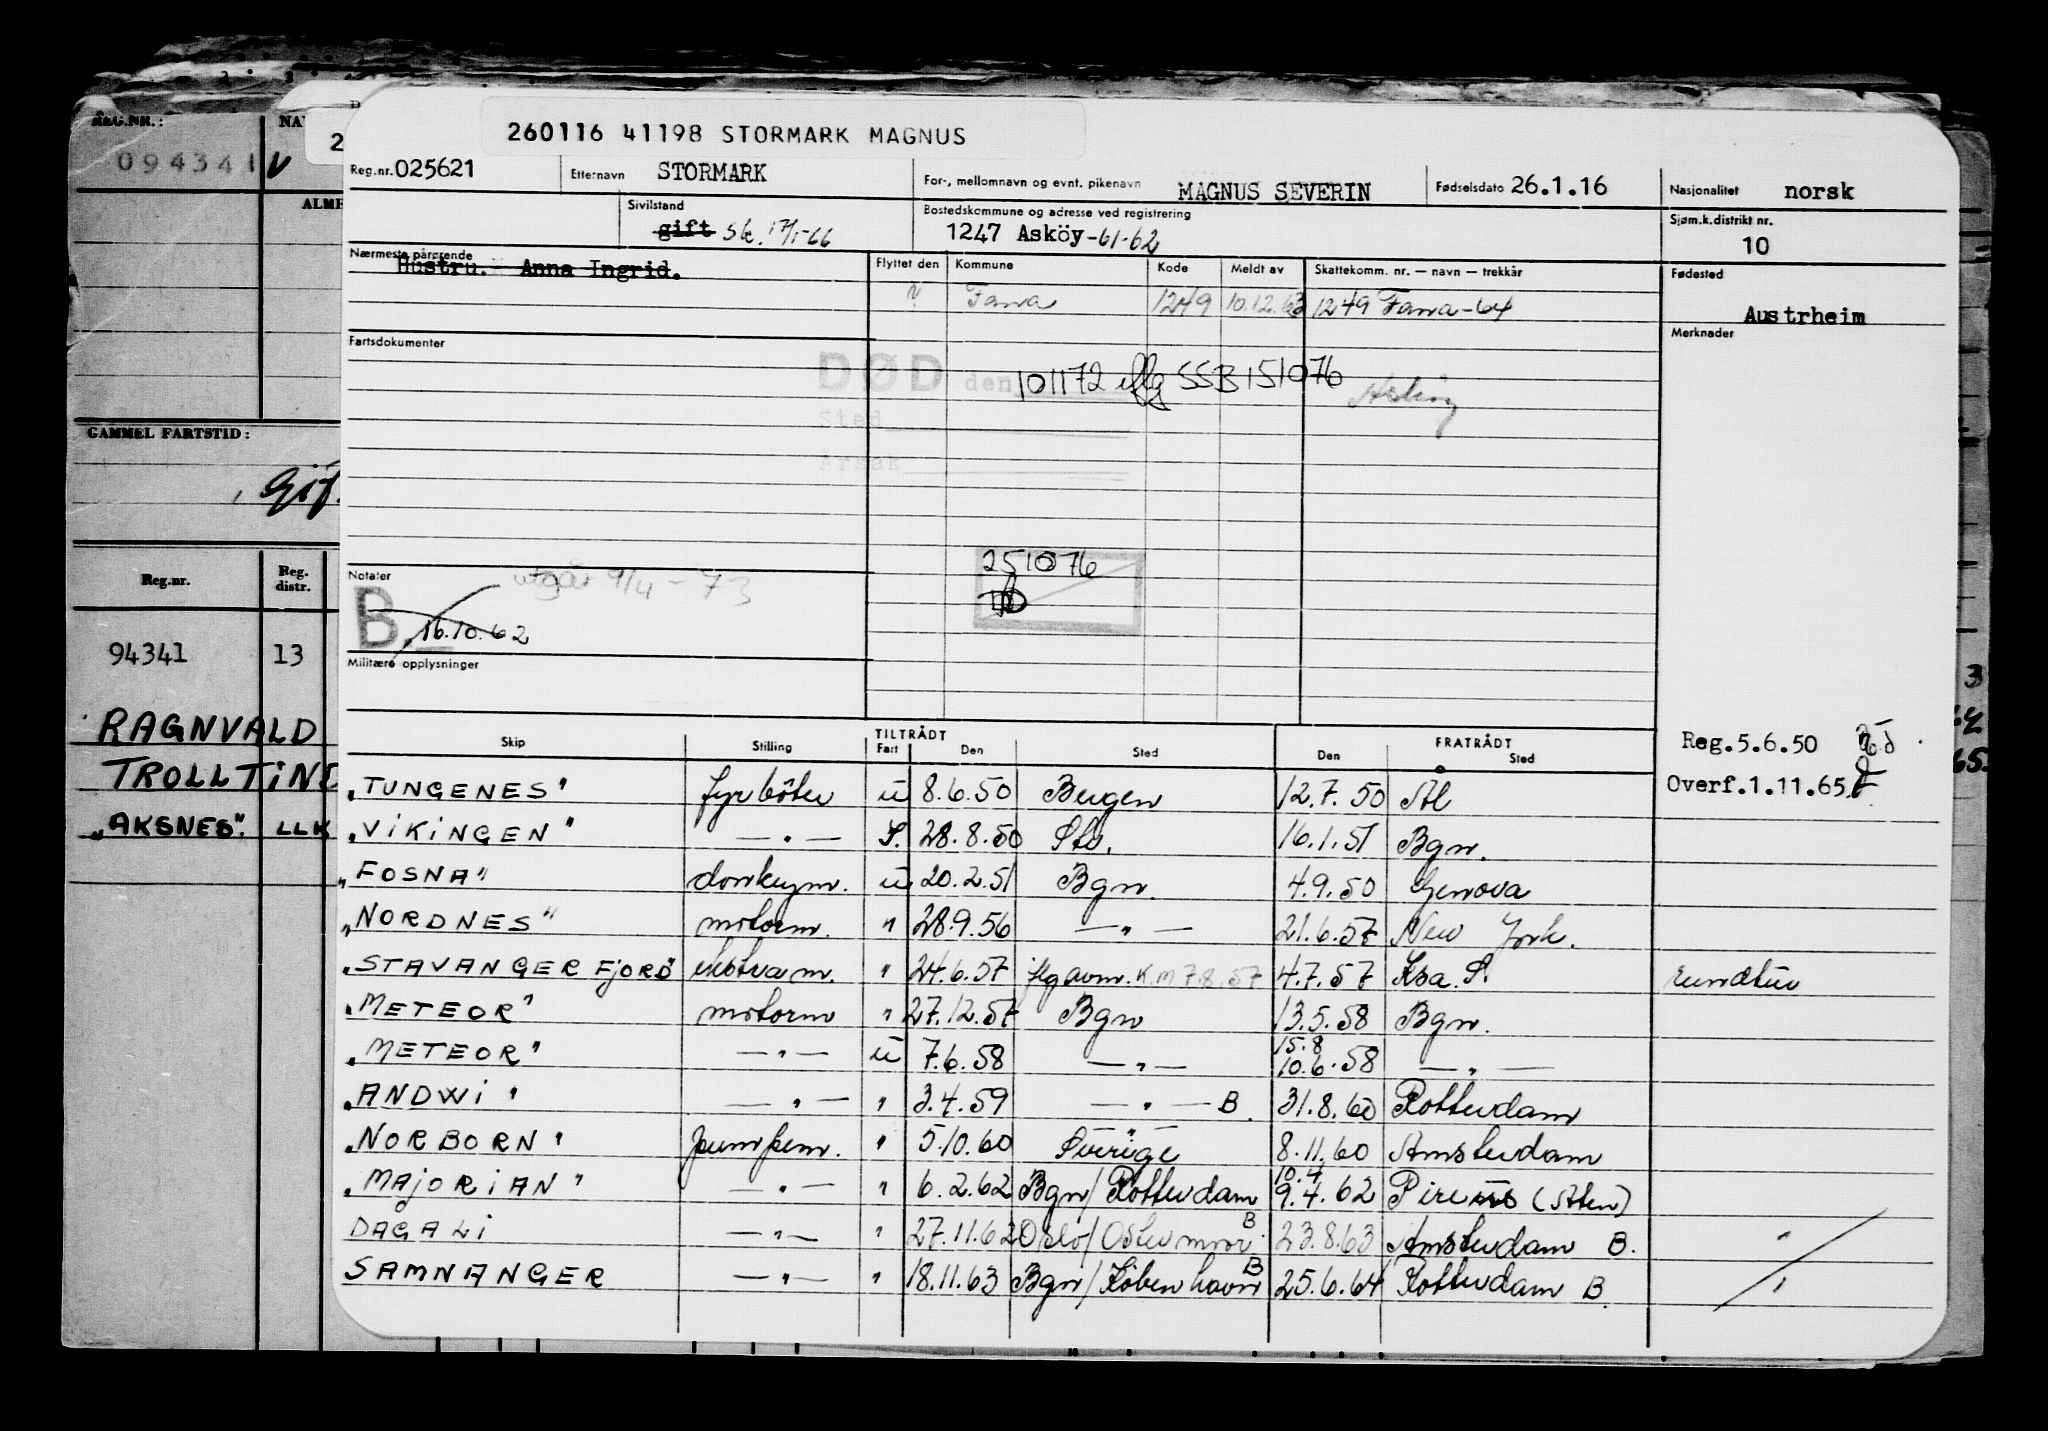 260116 41198 STORMARK MAGNUS
REG.NR.:
094341 V
Reg.nr. 025621 Etternavn STORMARK For-, mellomnavn og evnt. pikenavn MAGNUS SEVERIN Fødselsdato 26.1.16 Nasjonalitet norsk
Sivilstand gift Bostedskommune og adresse ved registrering 1247 Asköy-61-62 Sjøm.k.distrikt nr. 10
Nærmeste pårørende Hustru. Anna Ingrid.
Flyttet den Kommune Kode Meldt av Skattekomm. nr. — navn — trekkår Fødested
Fana 1249 10.12.63 1249 Fana-64 Austrheim
Fartsdokumenter Merknader
DØD den 101172 iflg SSB 151076
Sted
Årsak
GAMMEL FARTSTID:
Reg.nr. Reg. distr.
94341 13
RAGNVALD
TROLLTIND
„AKSNES". LLK
251076
Notater utgår 9/4-73
B 16.10.62
Militære opplysninger
Reg.5.6.50
Overf.1.11.65
TILTRÅDT FRATRÅDT
Skip Stilling Fart Den Sted Den Sted
„TUNGENES" fyrböter u 8.6.50 Bergen 12.7.50 Ål
„VIKINGEN" —"— S. 28.8.50 16.1.51 Bgn.
„FOSNA" donkeym. u 20.2.51 Bgn. 4.9.50 Genova
„NORDNES" motorm. " 28.9.56 —"— 21.6.57 New York.
„STAVANGERFJORD ekstram. " 24.6.57 iflg avm. K.M 7.8.57 4.7.57 Ksa. S. rundtur
„METEOR" motorm " 27.12.57 Bgn 13.5.58 Bgn.
„METEOR" —"— u 7.6.58 —"— 15.8 10.6.58 —"—
„ANDWI" —"— " 3.4.59 —"— B. 31.8.60 Rotterdam
„NORBORN" pumpem. " 5.10.60 Sverige 8.11.60 Amsterdam
„MAJORIAN" —"— " 6.2.62 Bgn/Rotterdam 10.4 9.4.62 Pireus (Aten)
DAGALI —"— " 27.11.62 Oslo/Ostermoor B 23.8.63 Amsterdam B. "
SAMNANGER —"— " 18.11.63 Bgn/København B 25.6.64 Rotterdam B. "